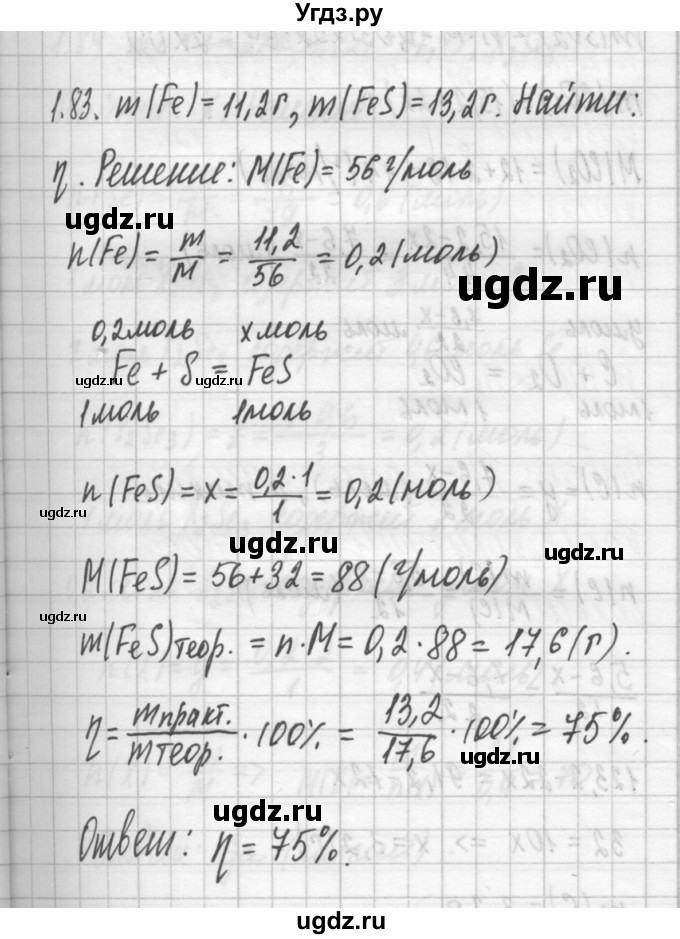 Угдз.ру
1.83. m(Fe)=11,2г, m(FeS)=13,2г. Найти:
η. Решение: M(Fe)=56 г/моль
ugdz.ru
n(Fe) = m/M = 11,2/56 = 0,2(моль)
ugdz.ru
0,2моль x моль
Fe + S = FeS
ugdz.ru
1моль 1моль
n(FeS)=x= 0,2·1/1 = 0,2(моль)
ugdz.ru
ugdz.ru
ugdz.ru
M(FeS)=56+32=88(г/моль)
ugdz.ru
m(FeS)теор. = n·M=0,2·88=17,6(г).
η= mпракт./mтеор. ·100% = 13,2/17,6 ·100%=75%.
ugdz.ru
ugdz.ru
Ответ: η=75%.
ugdz.ru
ugdz.ru